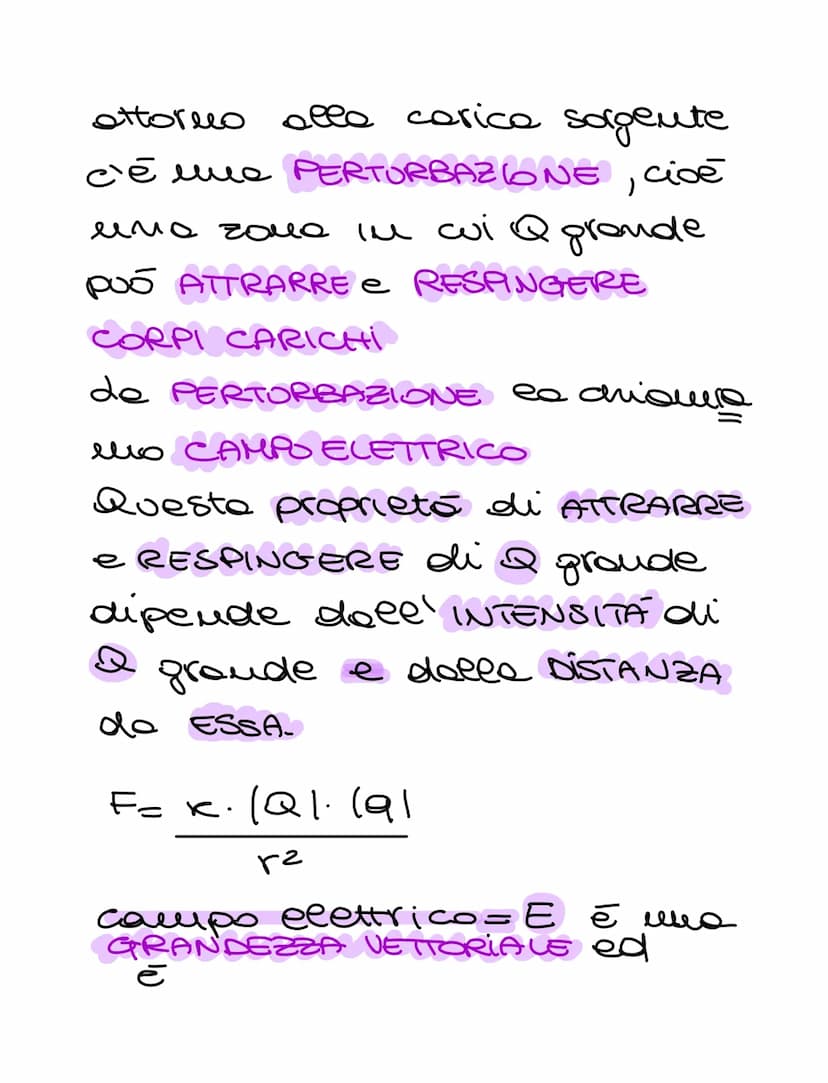 attorno alla carica sorgente
c'è una PERTURBAZIONE, cioè
una zona in cui Q grande
può ATTRARRE e RESPINGERE
CORPI CARICHI
La PERTURBAZIONE la chiamia
mo CAMPO ELETTRICO
Questa proprietà di ATTRARRE
e RESPINGERE di Q grande
dipende dall'INTENSITÀ di
Q grande e dalla DISTANZA
da ESSA.
F= k·|Q|·|q|
r²
campo elettrico=E è una
GRANDEZZA VETTORIALE ed
è